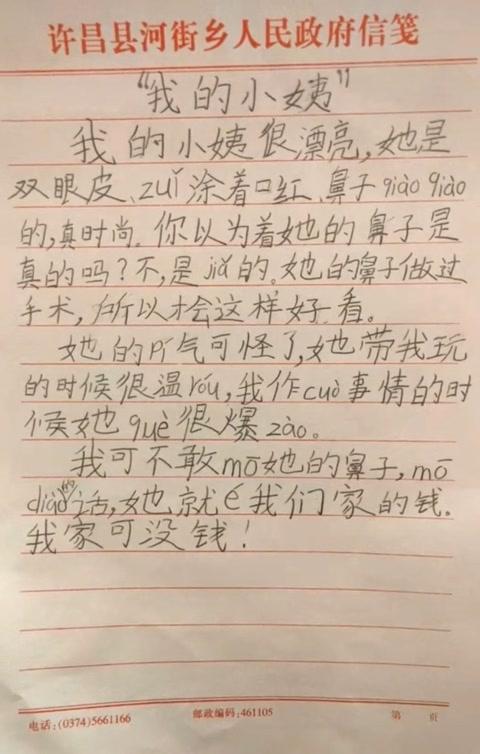 许昌县河街乡人民政府信笺
“我的小姨”
我的小姨很漂亮,她是
双眼皮、zuǐ涂着口红、鼻子qiào qiào
的,真时尚。你以为着她的鼻子是
真的吗?不,是jiǎ的。她的鼻子做过
手术,所以才会这样好看。
她的pí气可怪了,她带我玩
的时候很温róu,我作cuò事情的时
候她què很爆zào。
我可不敢mō她的鼻子,mō
diào的话,她就é我们家的钱。
我家可没钱!
电话:(0374)5661166 邮政编码:461105 第 页